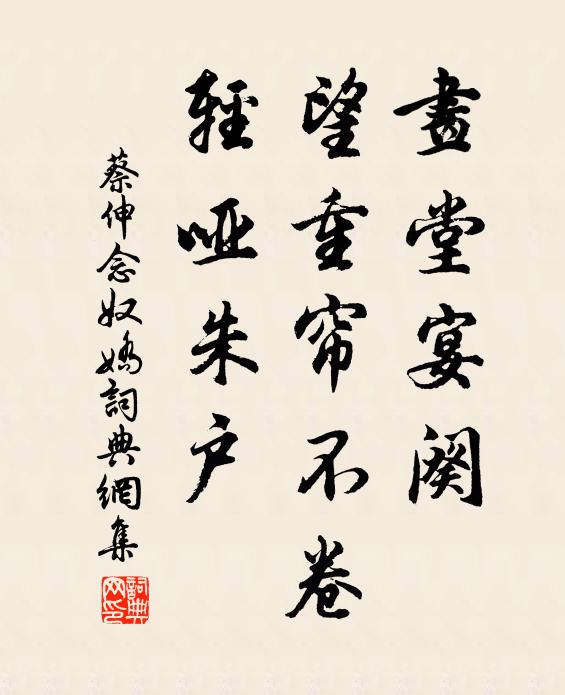 畫堂宴闋
望重帘不卷
輕啞朱戶
蔡伸念奴嬌詞典網集
詞典網印